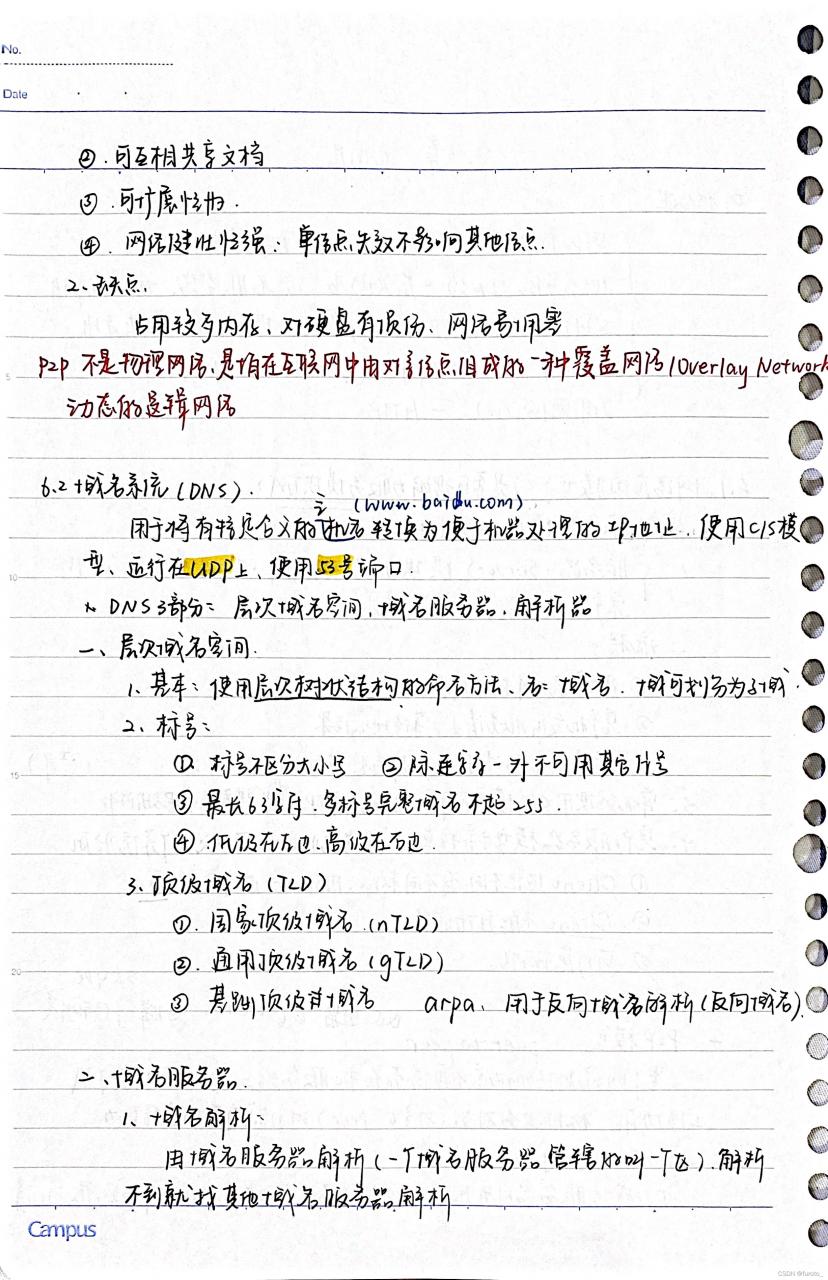 No.
Date
②. 可互相共享文档
③. 可扩展性好.
④. 网络健壮性强: 单结点失效不影响其他结点.
2. 缺点.
占用较多内存、对硬盘有损伤、网络易拥塞
P2P 不是物理网络,是指在互联网中由对等结点组成的一种覆盖网络(Overlay Network
动态的逻辑网络
6.2 域名系统 (DNS).
主 (www.baidu.com)
用于将有特定含义的 机名 转换为便于机器处理的IP地址, 使用C/S模
型、运行在UDP上、使用53号端口.
DNS 3部分: 层次域名空间, 域名服务器. 解析器
一、层次域名空间.
1. 基本: 使用层次树状结构的命名方法、名: 域名. 域可划分为子域.
2. 标号:
①. 标号不区分大小写 ②除连字符-外不可用其它符号
③ 最长63字符. 多标号完整域名不超255.
④. 低级在左边.高级在右边.
3. 顶级域名 (TLD)
①. 国家顶级域名. (nTLD)
②. 通用顶级域名 (gTLD)
③ 基础顶级域名 arpa、用于反向域名解析(反向域名).
二、域名服务器.
1. 域名解析:
由域名服务器解析(一个域名服务器管辖的叫一个区). 解析
不到就找其他域名服务器解析
Campus
CSDN @furoto_